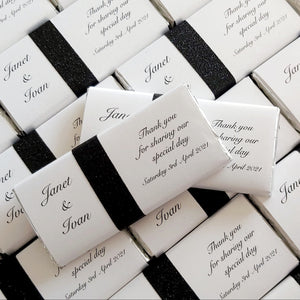 Janet
&
Ivan
Thank you
for sharing our
special day
Saturday 3rd April 2021
Janet
&
Ivan
Thank you
for sharing our
special day
Saturday 3rd April 2021
Thank you
for sharing our
special day
Saturday 3rd April 2021
Janet
&
Ivan
Thank you
for sharing our
special day
Saturday 3rd April 2021
Janet
&
Ivan
Thank you
for sharing our
special day
Saturday 3rd April 2021
special day
Saturday 3rd April 2021